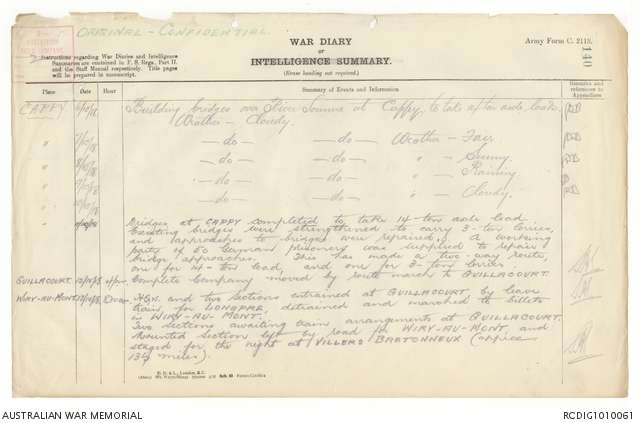 ORIGINAL - CONFIDENTIAL
WAR DIARY
or
INTELLIGENCE SUMMARY.
(Erase heading not required.)
Army Form C. 2118.
140
Instructions regarding War Diaries and Intelligence
Summaries are contained in F. S. Regs., Part II.
and the Staff Manual respectively. Title pages
will be prepared in manuscript.
Place Date Hour Summary of Events and Information Remarks and references to Appendices
CAPPY 6/10/18 Building bridges over River Somme at Cappy, to take 14 ton axle loads
Weather - Cloudy.
" 7/10/18 - do - Weather - Fair
" 8/10/18 - do - " - Sunny
" 9/10/18 - do - " - Raining
" 10/10/18 - do - " - Cloudy
" Bridges at CAPPY completed to take 14-ton axle load
Existing bridges were strengthened to carry 3-ton lorries,
and approaches to bridges were repaired. A working
party of 50 German prisoners was supplied to repair
bridge approaches. This has made a two-way route,
one for 14-ton load, and one for 3-ton lorries.
GUILLACOURT Complete Company moved by route march to GUILLACOURT.
WIRY-AU-MONT H.Q. and two Sections entrained at GUILLACOURT, by leave
train, for LONGPRE, detrained and marched to billets
in WIRY-AU-MONT.
Two Sections awaiting train arrangements at GUILLACOURT.
Mounted Section left by road for WIRY-AU-MONT, and
staged for the night at VILLERS BRETONNEUX (approx
13½ miles).
AUSTRALIAN WAR MEMORIAL
RCDIG1010061